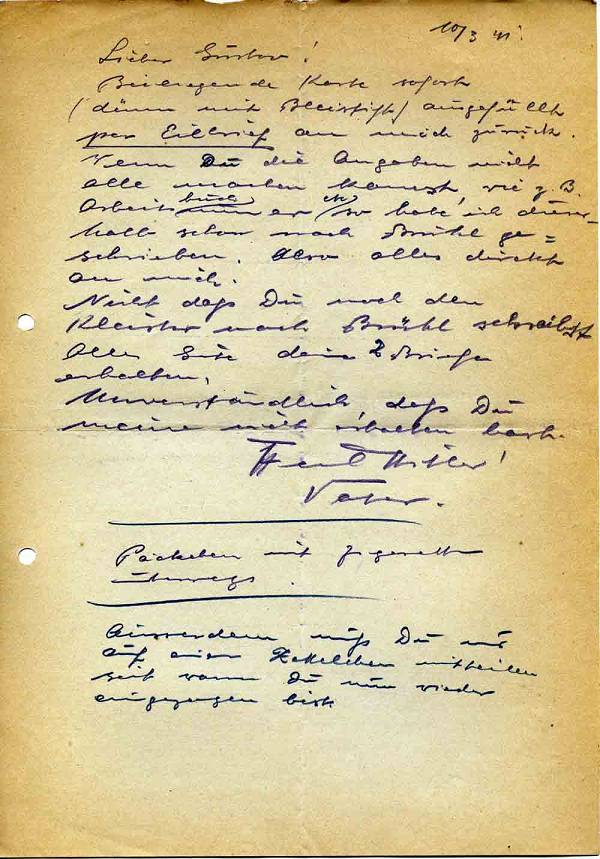 10/3 41.
Lieber Gustav!
Beiliegende Karte sofort
(dünn mit Bleistift) ausgefüllt
per Eilbrief an mich zurück.
Wenn Du die Angaben nicht
alle machen kannst, wie z. B.
Arbeitsbuch so habe ich dieser-
halb schon nach Brühl ge=
schrieben. Also alles direkt
an mich.
Nicht daß Du noch den
nach Brühl schreibst
Alles Gute deine 2 Briefe
erhalten.
Unverständlich, daß Du
meine nicht erhalten hast.
Heil Hitler!
Vater.
Päckchen mit Zigaretten
unterwegs.
Ausserdem muß Du mir
auf einem Zettelchen mitteilen
seit wann Du nun wieder
eingezogen bist